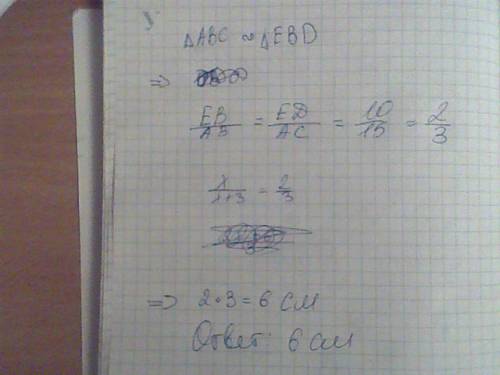 △ABC ∾ △EBD
⇒
EB/AB = ED/AC = 10/15 = 2/3
x/x+3 = 2/3
⇒ 2•3=6 см
Ответ: 6 см